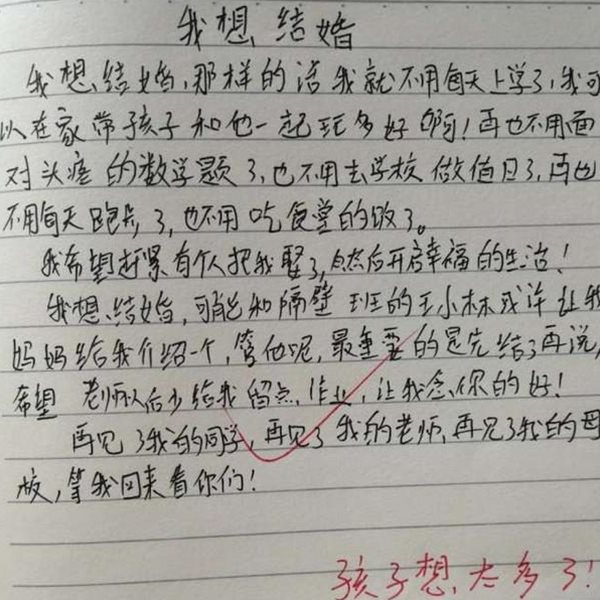 我想结婚
我想结婚,那样的话我就不用每天上学了,我可
以在家带孩子和他一起玩多好啊!再也不用面
对头疼的数学题了,也不用去学校做值日了,再也
不用每天跑步了,也不用吃食堂的饭了。
我希望赶紧有个人把我娶了,然后开启幸福的生活!
我想结婚,可能和隔壁班的王小林或许让我
妈妈给我介绍一个,管他呢,最重要的是先结了再说,
希望老师以后少给我留点作业,让我念你的好!
再见了我的同学,再见了我的老师,再见了我的母
校,等我回来看你们!
孩子想太多了!